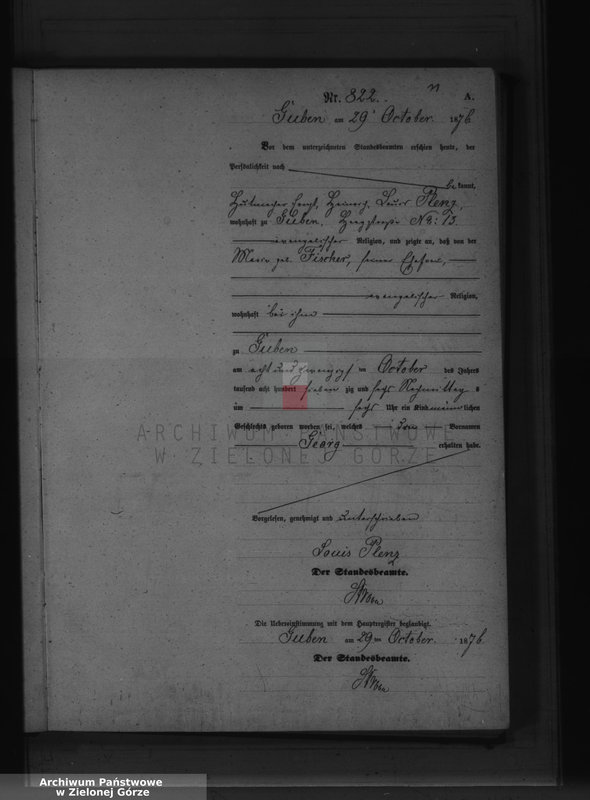 Nr. 822.
A.
Guben am 29 October 1876
Vor dem unterzeichneten Standesbeamten erschien heute, der
Persönlichkeit nach
be kannt,
Plenz,
wohnhaft zu Guben, No: 13.
evangelischer Religion, und zeigte an, daß von der
Marie geb. Fischer, seiner Ehefrau,
evangelischer Religion,
wohnhaft bei ihm
zu Guben
am acht und zwanzigsten October des Jahres
tausend acht hundert sieben zig und sechs Nachmittag s
um sechs Uhr ein Kind männlichen
Geschlechts geboren worden sei, welches den Vornamen
Georg erhalten habe.
Vorgelesen, genehmigt und unterschrieben
Louis Plenz
Der Standesbeamte.
Die Uebereinstimmung mit dem Hauptregister beglaubigt.
Guben am 29ten October 1876
Der Standesbeamte.
ARCHIWUM PAŃSTWOWE
W ZIELONEJ GÓRZE
Archiwum Państwowe
w Zielonej Górze